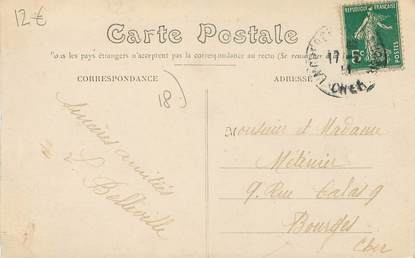 12-€
Carte Postale
Tous les pays étrangers n'acceptent pas la correspondance au recto (Se renseigner
CORRESPONDANCE
ADRESSE
RÉPUBLIQUE FRANÇAISE
5c
POSTES
CHER
18
Sincères amitiés
L. Belleville
Monsieur et Madame
Méténier
9. Rue Calas 9
Bourges
Cher